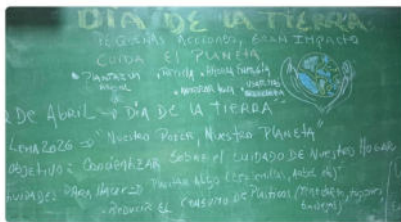 DIA DE LA TIERRA
PEQUEÑAS ACCIONES, GRAN IMPACTO
CUIDA EL PLANETA
• PLANTA UN • Recicla • Ahorra Energía
• AHORRAR AGUA
DE ABRIL → DIA DE LA TIERRA"
LEMA 2026 → "Nuestro Poder, Nuestro Planeta
OBJETIVO: Concientizar Sobre el cuidado de Nuestro Hogar
PARA HACER → Plantar Algo
- Reducir EL CONSUMO DE Plasticos